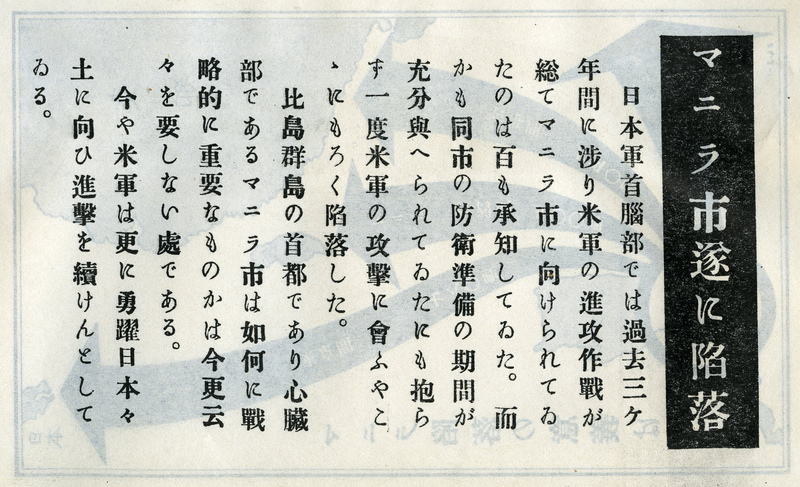 マニラ市遂に陥落
日本軍首腦部では過去三ケ
年間に渉り米軍の進攻作戰が
総てマニラ市に向けられてゐ
たのは百も承知してゐた。而
かも同市の防衛準備の期間が
充分與へられてゐたにも抱ら
ず一度米軍の攻擊に會ふやこ
ゝにもろく陥落した。
比島群島の首都であり心臟
部であるマニラ市は如何に戰
略的に重要なものかは今更云
々を要しない處である。
今や米軍は更に勇躍日本々
土に向ひ進擊を續けんとして
ゐる。